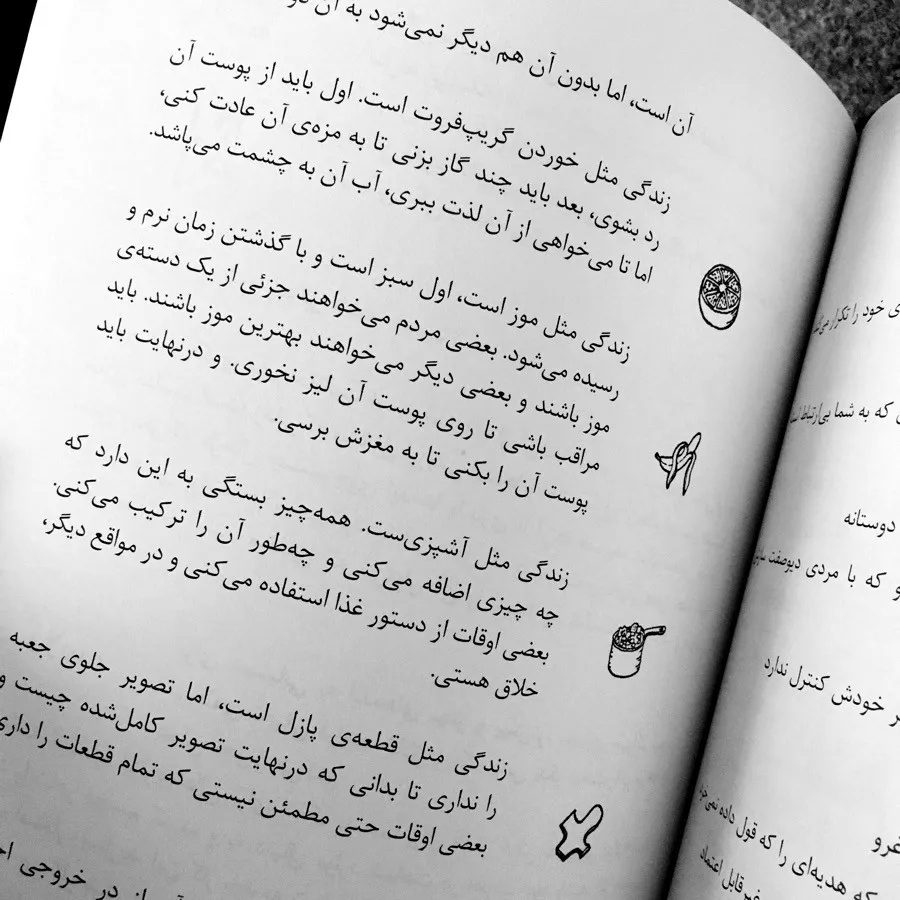 آن است، اما بدون آن هم دیگر نمی‌شود به آن
زندگی مثل خوردن گریپ‌فروت است. اول باید از پوست آن
رد بشوی، بعد باید چند گاز بزنی تا به مزه‌ی آن عادت کنی،
اما تا می‌خواهی از آن لذت ببری، آب آن به چشمت می‌پاشد.
زندگی مثل موز است، اول سبز است و با گذشتن زمان نرم و
رسیده می‌شود. بعضی مردم می‌خواهند جزئی از یک دسته‌ی
موز باشند و بعضی دیگر می‌خواهند بهترین موز باشند. باید
مراقب باشی تا روی پوست آن لیز نخوری. و درنهایت باید
پوست آن را بکنی تا به مغزش برسی.
زندگی مثل آشپزی‌ست. همه‌چیز بستگی به این دارد که
چه چیزی اضافه می‌کنی و چه‌طور آن را ترکیب می‌کنی.
بعضی اوقات از دستور غذا استفاده می‌کنی و در مواقع دیگر،
خلاق هستی.
زندگی مثل قطعه‌ی پازل است، اما تصویر جلوی جعبه
را نداری تا بدانی که درنهایت تصویر کامل‌شده چیست و
بعضی اوقات حتی مطمئن نیستی که تمام قطعات را داری
در خروجی
ی خود را تکرار
که به شما بی‌ارتباط
دوستانه
و که با مردی دیوصفت
بر خودش کنترل ندارد
که هدیه‌ای را که قول داده
غیرقابل اعتماد